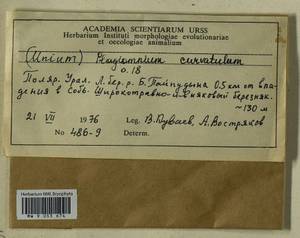 ACADEMIA SCIENTIARUM URSS
Herbarium Instituti morphologiae evolutionariae
et oecologiae animalium
(Mnium) Plagiomnium curvatulum
0.18
Поляр. Урал. Л. бер. р. Б. Пайпудына 0.5 км от впа-
дения в Собь. Широкотравно- березняк.
~130 м
21 VII 1976 Leg. В. Куваев, А. Востряков
No 486-9 Determ.
Herbarium MW, Bryophyta
MW 9 053 674